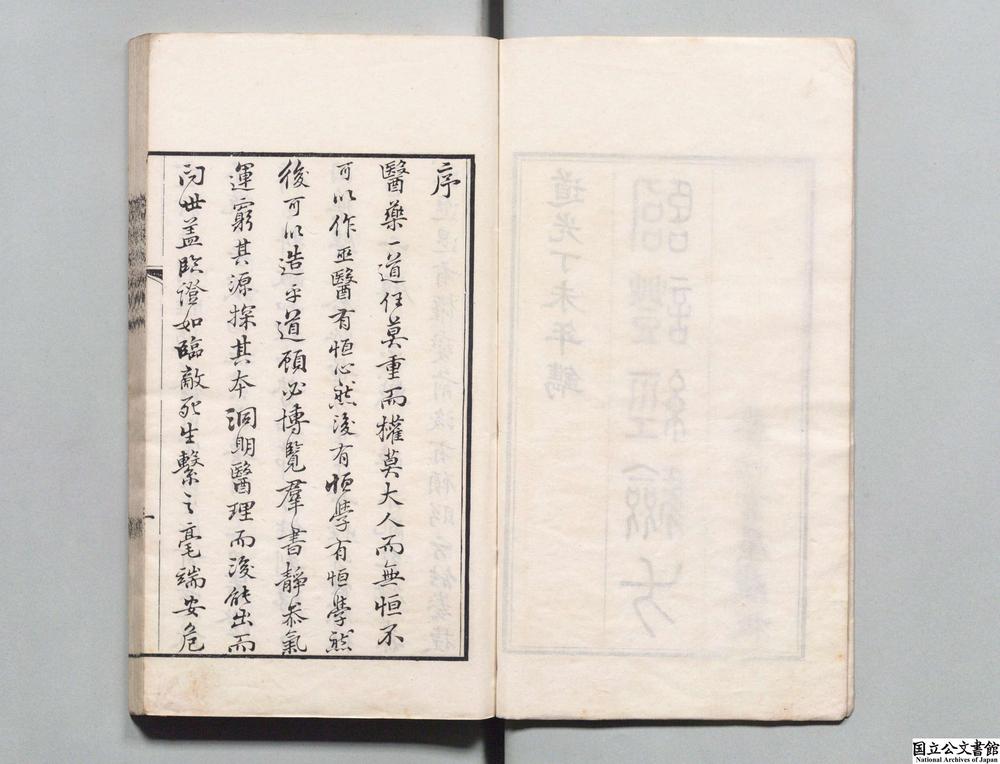 序
醫藥一道任莫重而權莫大人而無恒不
可以作巫醫有恒心然後有恒學有恒學然
後可以造乎道顧必博覽羣書靜叅氣
運窮其源探其本洞明醫理而後能出而
問世盖臨證如臨敵死生繫之毫端安危
一
道光丁未年鐫
国立公文書館
National Archives of Japan